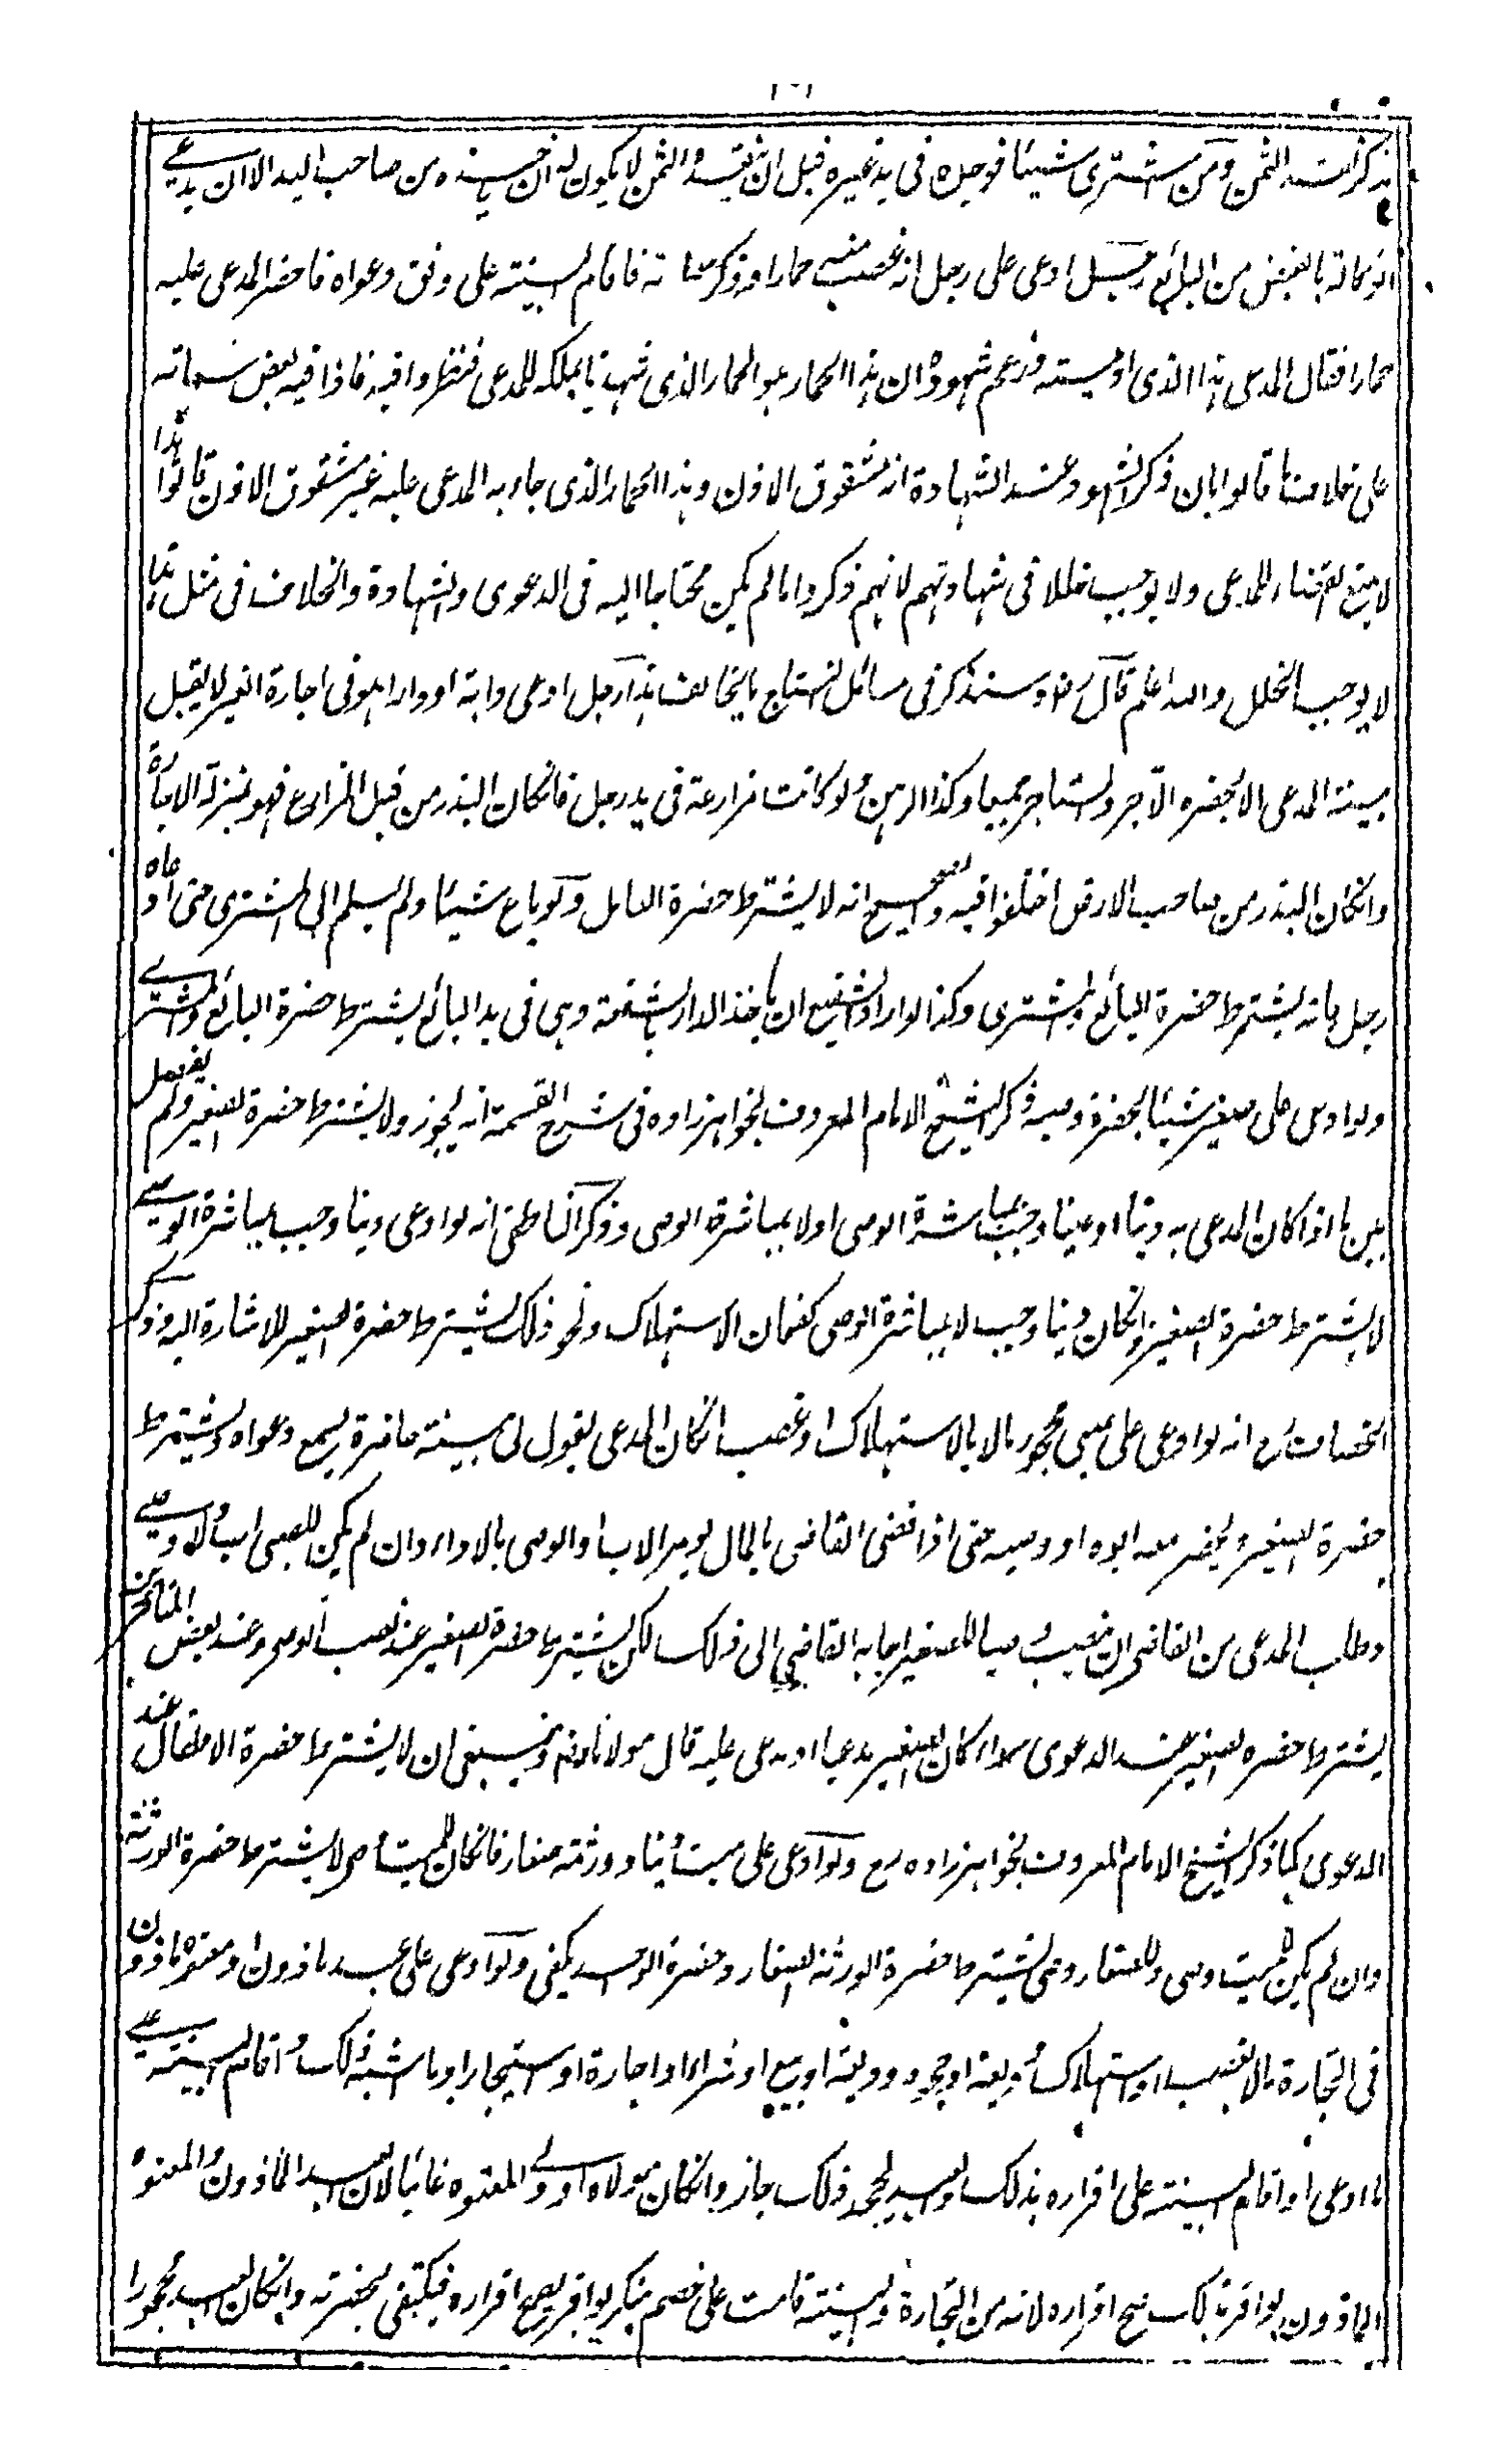 يذكر انتقد الثمن ومن اشترى شيئا فوجده فى يد غيره قبل ان ينقد الثمن لا يكون له ان ياخذه من صاحب اليد الا ان يدعى
الوكالة بالقبض من البائع رجل ادعى على رجل انه غصب منه حمارا وذكر شياته فاقام البينة على وفق دعواه فاحضر المدعى عليه
حمارا فقال المدعى هذا الذى ادعيته وزعم شهوده ان هذا الحمار هو الحمار الذى شهدنا بملكه للمدعى فنظروا فيه فاذا فيه بعض سماته
على خلاف ما قالوا بان ذكر الشهود عند الشهادة انه مشقوق الاذن وهذا الحمار الذى جاء به المدعى عليه غير مشقوق الاذن قالوا هذا
لا يمنع القضاء للمدعى ولا يوجب خللا فى شهادتهم لانهم ذكروا ما لم يكن محتاجا اليه فى الدعوى والشهادة والخلاف فى مثل هذا
لا يوجب الخلل والله اعلم قال رض وسنذكر فى مسائل النتاج ما يخالف هذا رجل ادعى دابة او دارا هو فى اجارة الغير لا يقبل
بينة المدعى الا بحضرة الآجر والمستاجر جميعا وكذا الرهن ولو كانت مزارعة فى يد رجل فانكان البذر من قبل المزارع فهو بمنزلة الاجارة
وانكان البذر من صاحب الارض اختلفوا فيه والصحيح انه لا يشترط حضرة العامل ولو باع شيئا ولم يسلم الى المشترى حتى ادعاه
رجل فانه يشترط حضرة البائع والمشترى وكذا لو اراد الشفيع ان ياخذ الدار بالشفعة وهى فى يد البائع يشترط حضرة البائع والمشترى
ولو ادعى على صغير شيئا بحضرة وصيه ذكر الشيخ الامام المعروف بخواهرزاده فى شرح القسمة انه يجوز ولا يشترط حضرة الصغير ولم يفصل
بين ما اذا كان المدعى به دينا او عينا وجب بمباشرة الوصى او لا بمباشرة الوصى وذكر الناطفى انه لو ادعى دينا وجب بمباشرة الوصى
لا يشترط حضرة الصغير وانكان دينا وجب لا بمباشرة الوصى كضمان الاستهلاك ونحو ذلك يشترط حضرة الصغير للاشارة اليه وذكر
الخصاف رح انه لو ادعى على صبى محجور مالا بالاستهلاك او غصب انكان المدعى يقول لى بينة حاضرة يسمع دعواه ويشترط
حضرة الصغير ويحضر معه ابوه او وصيه حتى اذا قضى القاضى بالمال يومر الاب او الوصى بالاداء وان لم يكن للصبى اب ولا وصى
وطلب المدعى من القاضى ان ينصب وصيا للصغير اجابه القاضى الى ذلك لكن يشترط حضرة الصغير عند نصب الوصى وعند بعض المتاخرين
يشترط حضرة الصغير عند الدعوى سواء كان الصغير مدعيا او مدعى عليه قال مولانا رض وينبغى ان لا يشترط حضرة الاطفال عند
الدعوى كما ذكر الشيخ الامام المعروف بخواهرزاده رح ولو ادعى على ميت دينا وورثته صغار فانكان للميت وصى لا يشترط حضرة الورثة
وان لم يكن للميت وصى وللصغار وصى يشترط حضرة الورثة الصغار وحضرة الواحد يكفى ولو ادعى على عبد ماذون او معتوه ماذون
فى التجارة مالا بغصب او استهلاك وديعة او جحود وديعة او بيع او شراء او اجارة او استيجار او ما اشبه ذلك واقام البينة على
ما ادعى او اقام البينة على اقراره بذلك والعبد يجحد ذلك جاز وانكان مولاه او ولى المعتوه غائبا لان العبد الماذون والمعتوه
الماذون لو اقر بذلك صح اقراره لانه من التجارة والبينة قامت على خصم منكر لو اقر يصح اقراره فيكتفى بحضرته وانكان العبد محجورا